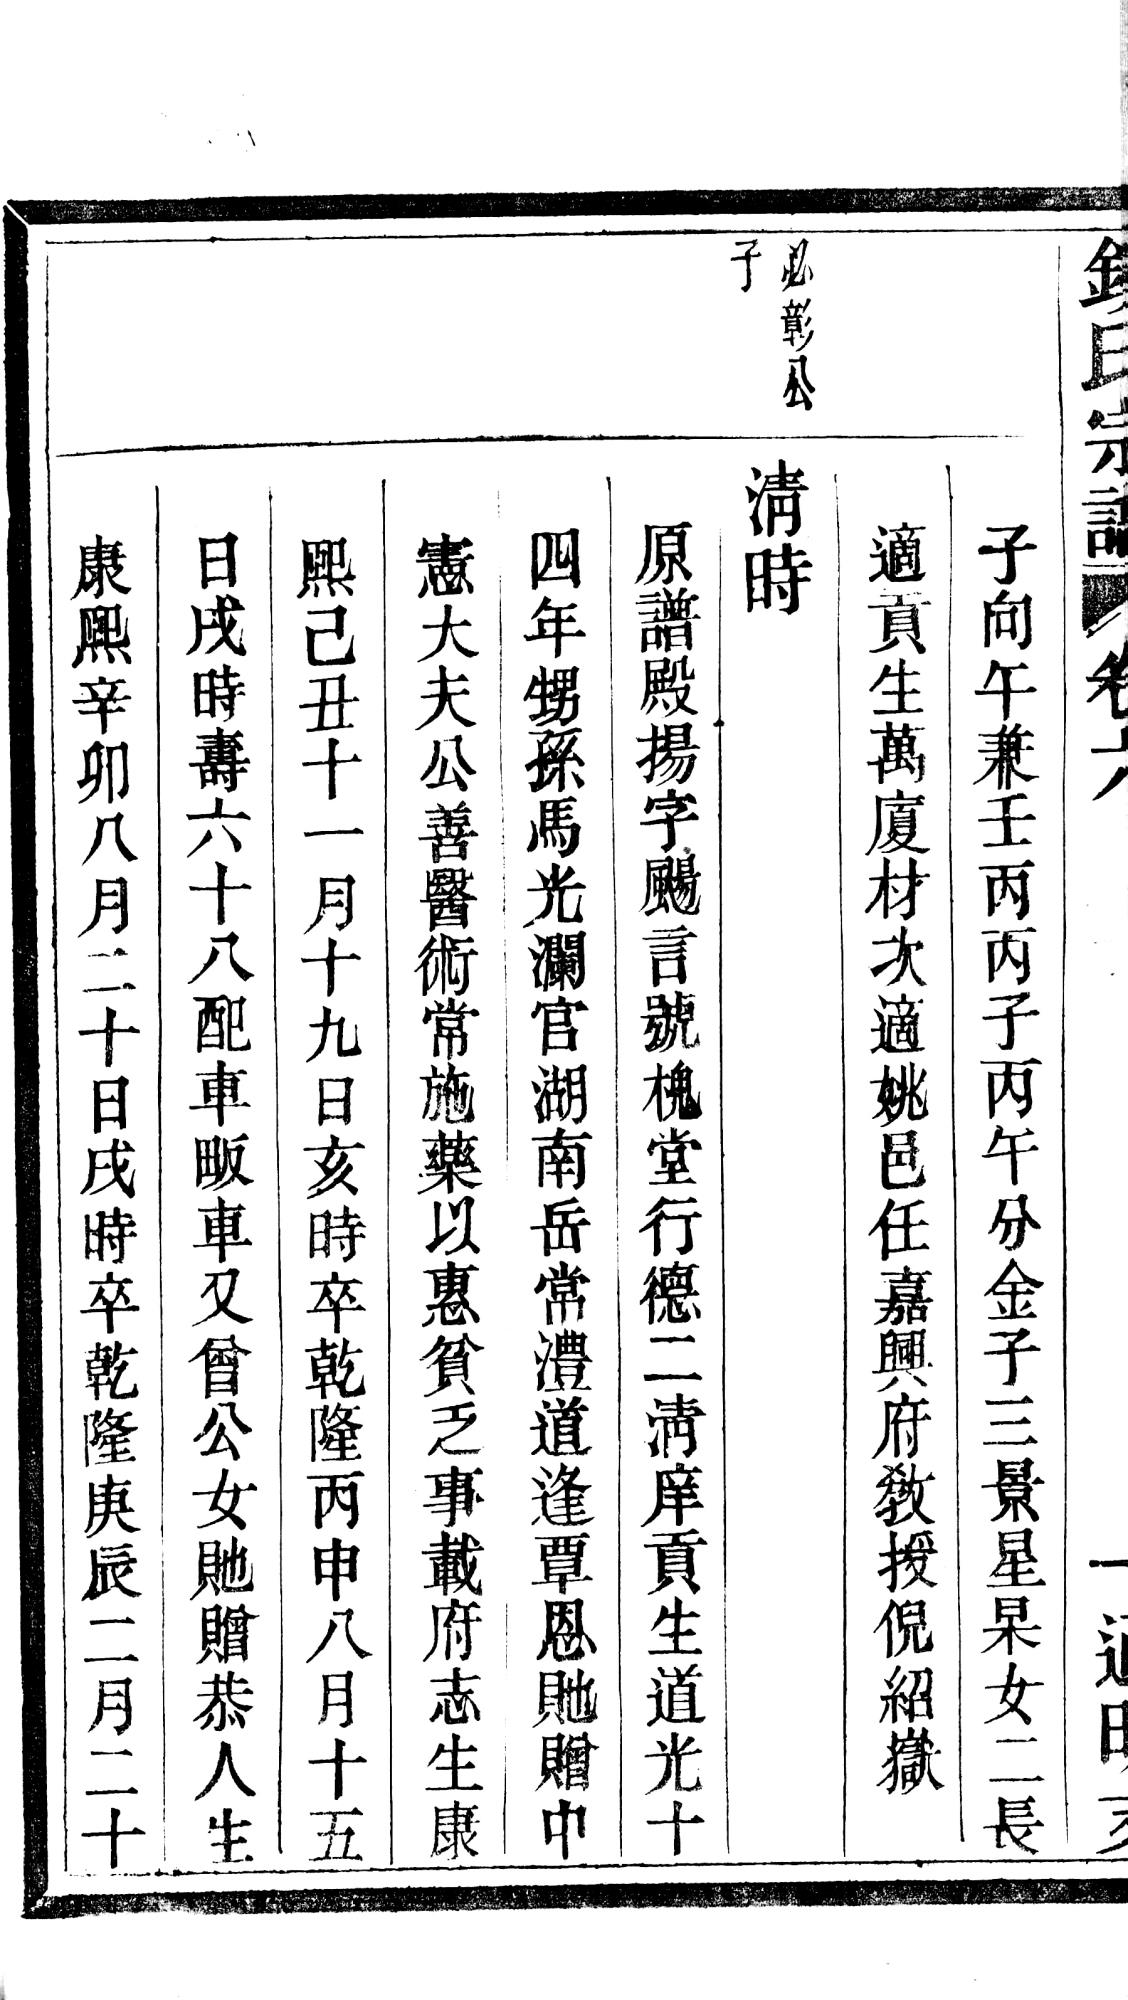 氏宗譜
卷六
子向午兼壬丙丙子丙午分金子三景星杲女二長
適貢生萬廈材次適姚邑任嘉興府敎授倪紹嶽
必彰公
子
淸時
原譜殿揚字颺言號槐堂行德二淸庠貢生道光十
四年甥孫馬光瀾官湖南岳常澧道逢覃恩貤贈中
憲大夫公善醫術常施藥以惠貧乏事載府志生康
熙己丑十一月十九日亥時卒乾隆丙申八月十五
日戌時壽六十八配車畈車又曾公女貤贈恭人生
康熙辛卯八月二十日戌時卒乾隆庚辰二月二十